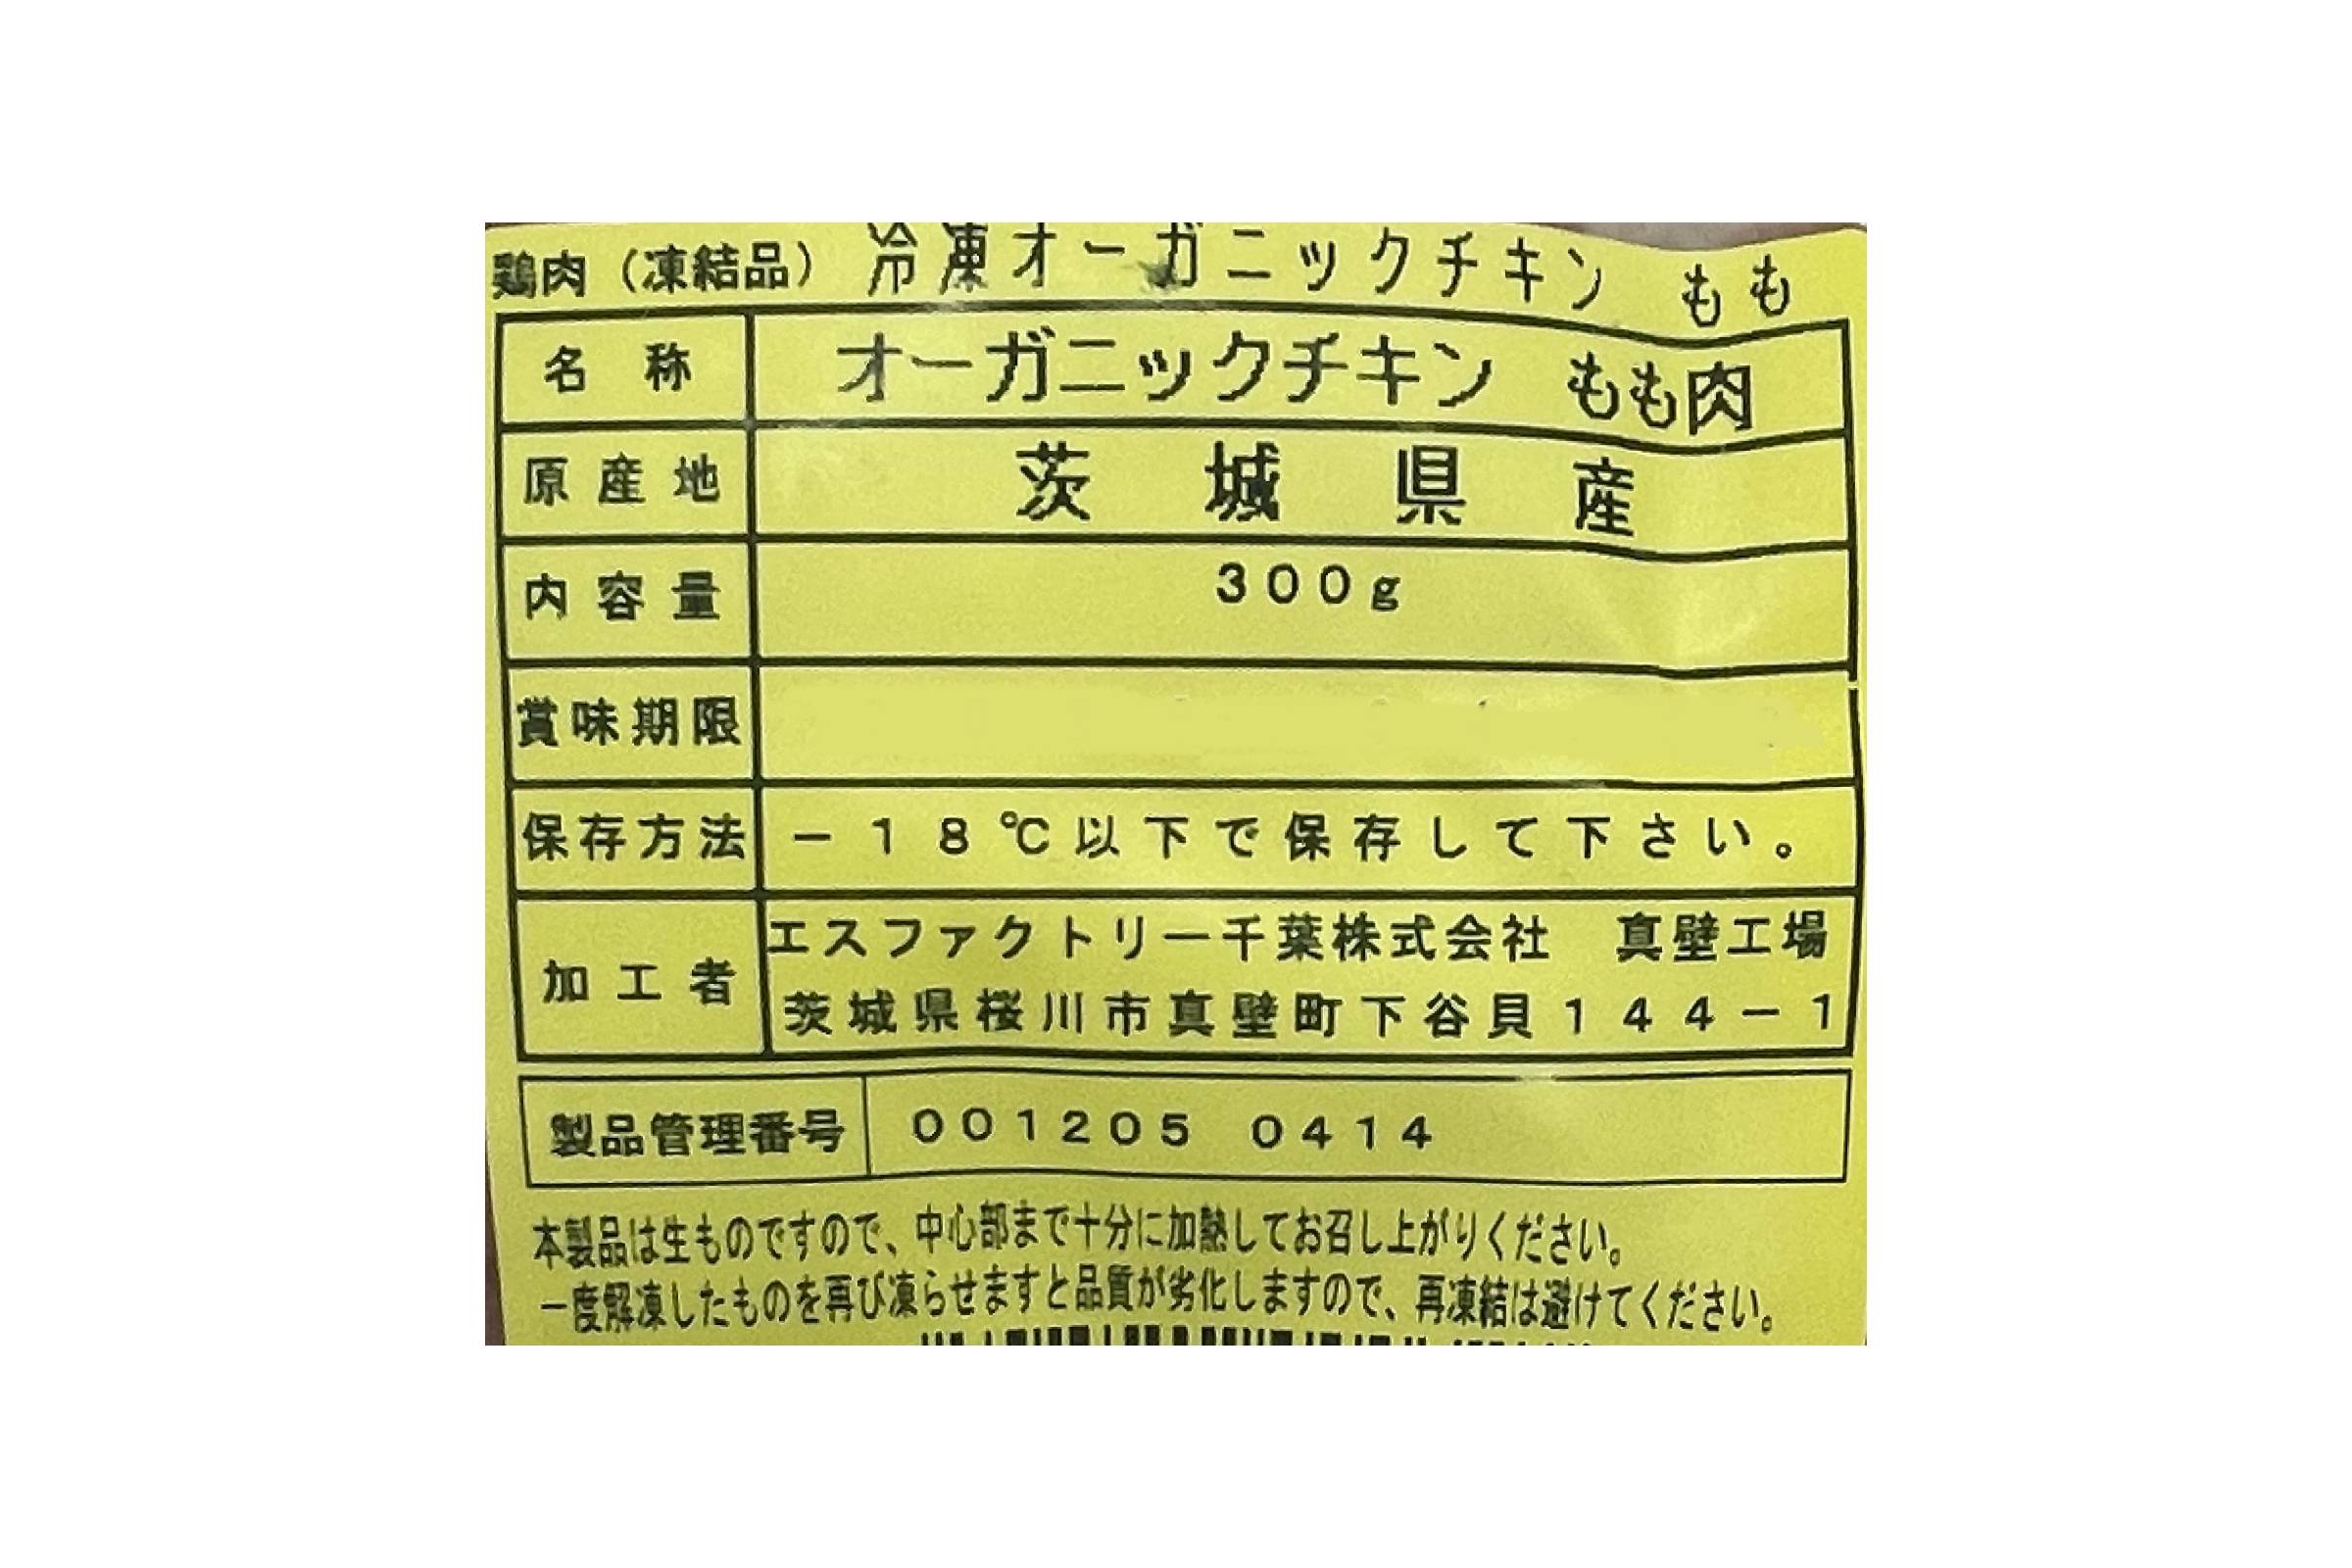 鶏肉（凍結品） 冷凍オーガニックチキン もも
名称 オーガニックチキン もも肉
原産地 茨城県産
内容量 300g
賞味期限
保存方法 －18℃以下で保存して下さい。
加工者 エスファクトリー千葉株式会社 真壁工場
茨城県桜川市真壁町下谷貝144－1
製品管理番号 001205 0414
本製品は生ものですので、中心部まで十分に加熱してお召し上がりください。
一度解凍したものを再び凍らせますと品質が劣化しますので、再凍結は避けてください。